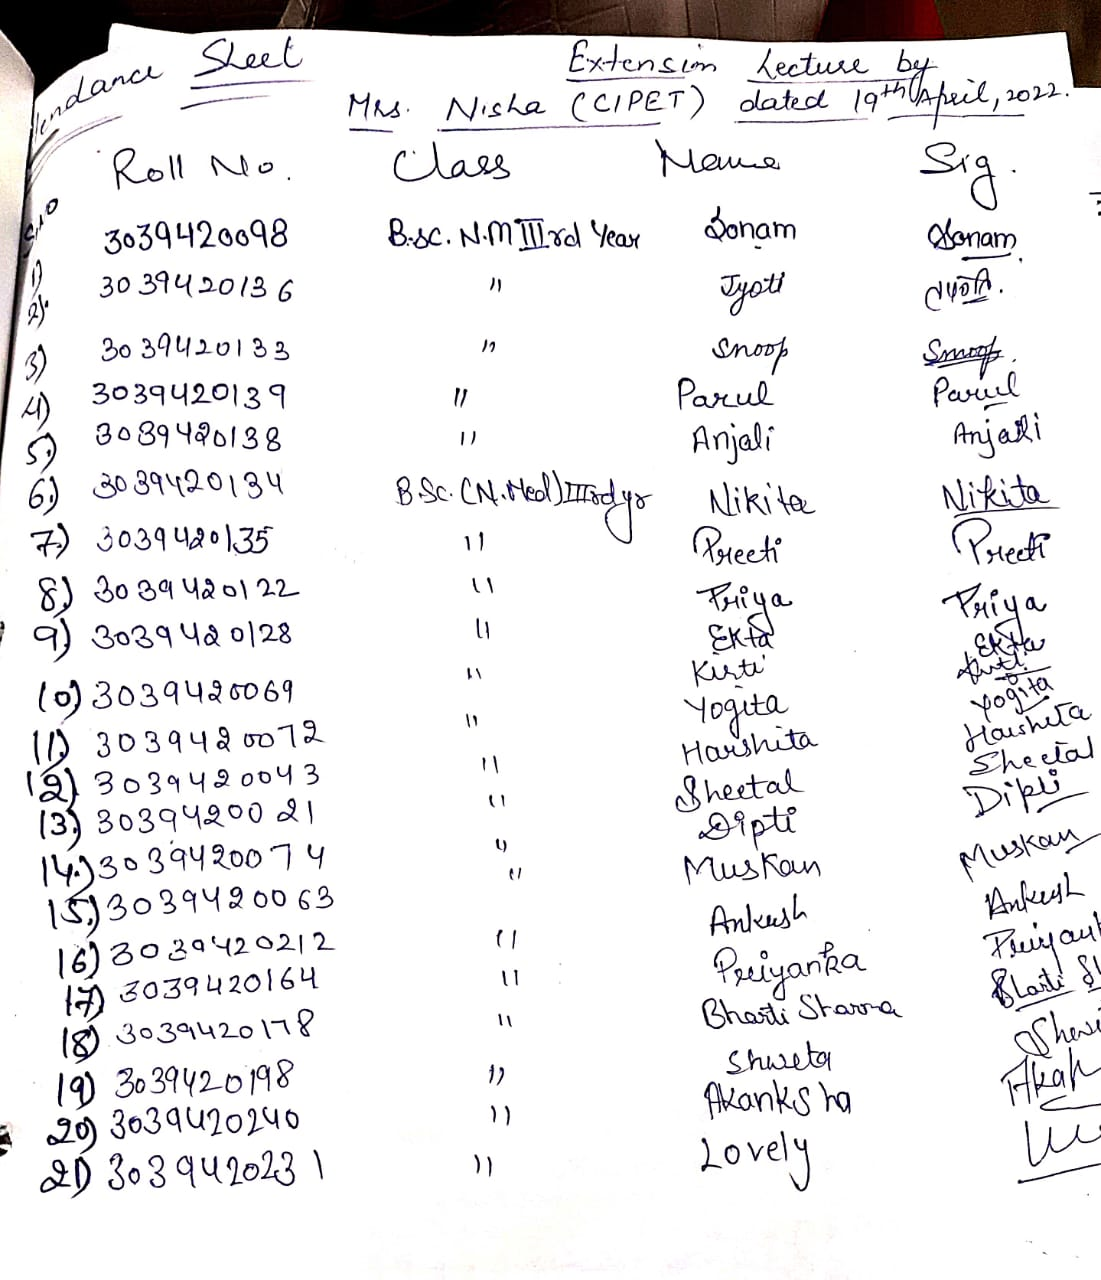 Attendance Sheet
Extension Lecture by
Mrs. Nisha (CIPET) dated 19th April, 2022.
S.No Roll No. Class Name Sig.
1) 3039420098 B.Sc. N.M IIIrd Year Sonam Sonam
2) 3039420136 " Jyoti ज्योति
3) 3039420133 " Snoop Snoop
4) 3039420139 " Parul Parul
5) 3039420138 " Anjali Anjali
6) 3039420134 B.Sc. (N.Med) IIIrd yr Nikita Nikita
7) 3039420135 " Preeti Preeti
8) 3039420122 " Priya Priya
9) 3039420128 " Ekta Ekta
10) 3039420069 " Kirti Kirti
11) 3039420072 " Yogita Yogita
12) 3039420043 " Harshita Harshita
13) 3039420021 " Sheetal Sheetal
14.) 3039420074 " Dipti Dipti
15.) 3039420063 " Muskan Muskan
16) 3039420212 " Ankush Ankush
17) 3039420164 " Priyanka Priyank
18) 3039420178 " Bharti Sharma Bharti Sh
19) 3039420198 " Shweta Shwe
20) 3039420240 " Akanksha Akan
21) 3039420231 " Lovely